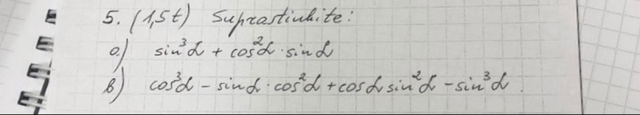 5. (1,5t) Suprastinkite:
a) sin³α + cos²α · sinα
b) cos³α - sinα · cos²α + cosα sin²α - sin³α.